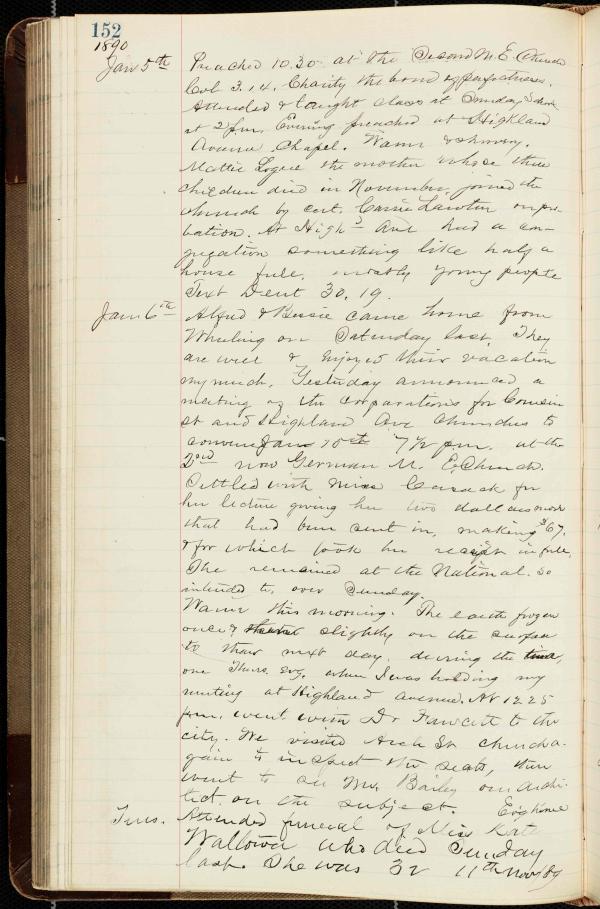 152
1890
Jan 5th Preached 10.30 at the Second M. E. Church
Col 3.14. Charity the bond of perfectness.
Attended & taught class at Sunday School
at 2 p.m. Evening preached at Highland
Avenue Chapel. Warm & showery.
Mattie Logue the mother whose three
children died in November, joined the
church by cert. Cassie Lawton on pro-
bation. At Highd Ave had a con-
gregation something like half a
house full, mostly young people
Text Deut 30, 19.
Jan 6th Alfred & Bessie came home from
Wheeling on Saturday last. They
are well & enjoyed their vacation
very much. Yesterday announced a
meeting of the corporations for Cousin
st and Highland Ave Churches to
convene Jan 10th 7 1/2 pm. at the
2nd now German M. E. Church.
Settled with Miss for
her lecture giving her two dollars more
that had been sent in, making $67.
& for which took her receipt in full.
She remained at the National. So
intended to, over Sunday.
Warm this morning. The earth frozen
once & slightly on the surface
to thaw next day. during the time,
one Thurs. Evg. when I was holding my
meeting at Highland avenue. At 12.25
p.m. went with Dr Fawcett to the
city. We visited Arch St church a-
gain to inspect the seats, then
went to see Mr. Bailey our archi-
tect. on the subject. Evg home
Tues. Attended funeral of Miss Kate
Wallower who died Sunday
last. She was 32 11th Nov/89